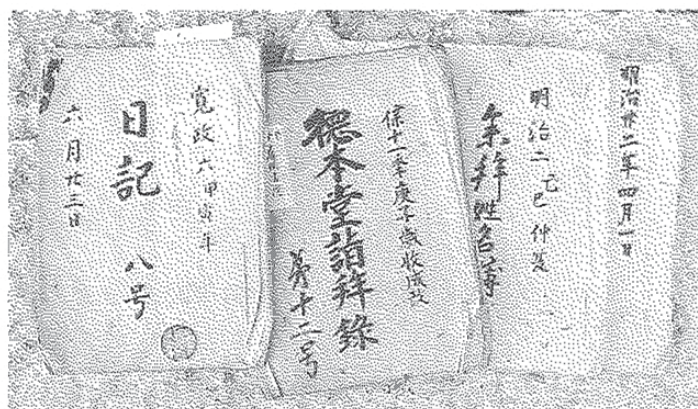 明治廿二年四月一日
明治二己巳仲夏
参拜姓名簿
保十一季庚子歳
德本堂詣拜錄
第十二号
寛政六甲寅年
日記 八号
六月廿三日